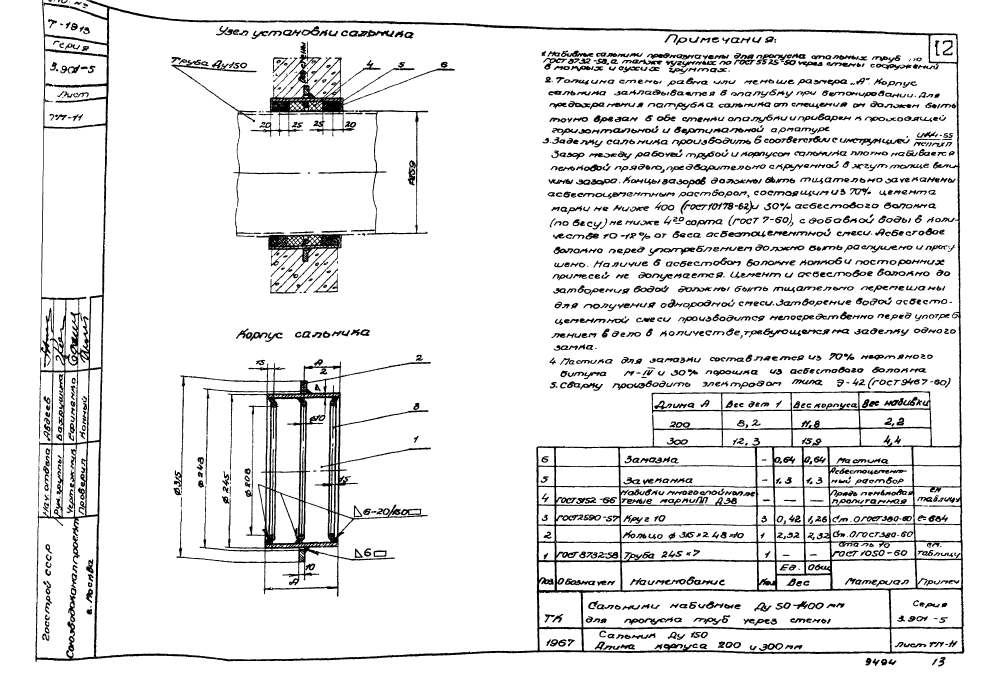 Т-1913
серия
3.901-5
Лист
ТМ-11
Узел установки сальника
Труба Ду150
4
5
6
20
25
25
20
Корпус сальника
А
2
15
2
3
1
ф10
ф315
ф248
ф245
ф208
15
6-20/150
6
10
А
Примечания:
12
1. Набивные сальники предназначены для пропуска стальных труб по
ГОСТ 8732-58, а также чугунных по ГОСТ 9525-50 через стены сооружений
в мокрых и сухих грунтах.
2. Толщина стены равна или меньше размера "А" Корпус
сальника закладывается в опалубку при бетонировании. Для
предохранения патрубка сальника от смещения он должен быть
точно врезан в обе стенки опалубки и приварен к проходящей
горизонтальной и вертикальной арматуре
3. Заделку сальника производить в соответствии с инструкцией
Зазор между рабочей трубой и корпусом сальника плотно набивается
пеньковой прядью, предварительно скрученной в жгут толще вели-
чины зазора. Концы зазоров должны быть тщательно зачеканены
асбестоцементным раствором, состоящим из 70% цемента
марки не ниже 400 (ГОСТ 10178-62) и 30% асбестового волокна
(по весу) не ниже 4го сорта (ГОСТ 7-60), с добавкой воды в коли-
честве 10-12% от веса асбестоцементной смеси. Асбестовое
волокно перед употреблением должно быть распушено и просу-
шено. Наличие в асбестовом волокне комков и посторонних
примесей не допускается. Цемент и асбестовое волокно до
затворения водой должны быть тщательно перемешаны
для получения однородной смеси. Затворение водой асбесто-
цементной смеси производится непосредственно перед употреб-
лением в дело в количестве, требующемся на заделку одного
замка.
4. Мастика для замазки составляется из 70% нефтяного
битума М-IV и 30% порошка из асбестового волокна
5. Сварку производить электродом типа Э-42 (ГОСТ 9467-60)
Длина А Вес дет 1 Вес корпуса Вес набивки
200 8,2 11,8 2,2
300 12,3 15,9 4,4
6 Замазка - 0,64 0,64 Мастика
5 Зачеканка - 1,3 1,3 Асбестоцемент-
ный раствор
4 ГОСТ 5152-66 Набивки многослойнопле-
теные марки ПП Д38 - Прядь пеньковая пропитанная см. таблицу
3 ГОСТ 2590-57 Круг 10 3 0,42 1,26 Ст. 0 ГОСТ 380-60 ℓ=684
2 Кольцо ф 315×248×10 1 2,32 2,32 Ст. 0 ГОСТ 380-60
1 ГОСТ 8732-58 Труба 245×7 1 - Сталь 10 ГОСТ 1050-60 см. таблицу
Поз Обозначен Наименование Кол Ед. Общ Вес Материал Примеч
ТК Сальники набивные Ду 50-1400 мм
для пропуска труб через стены
Серия
3.901-5
1967 Сальник Ду 150
Длина корпуса 200 и 300мм
Лист ТМ-11
9494 13
Нач. отдела Авдеев
Рук. группы Вахрушина
Чертежник Ефименко
Проверил Конный
Госстрой СССР
Союзводоканалпроект
г. Москва